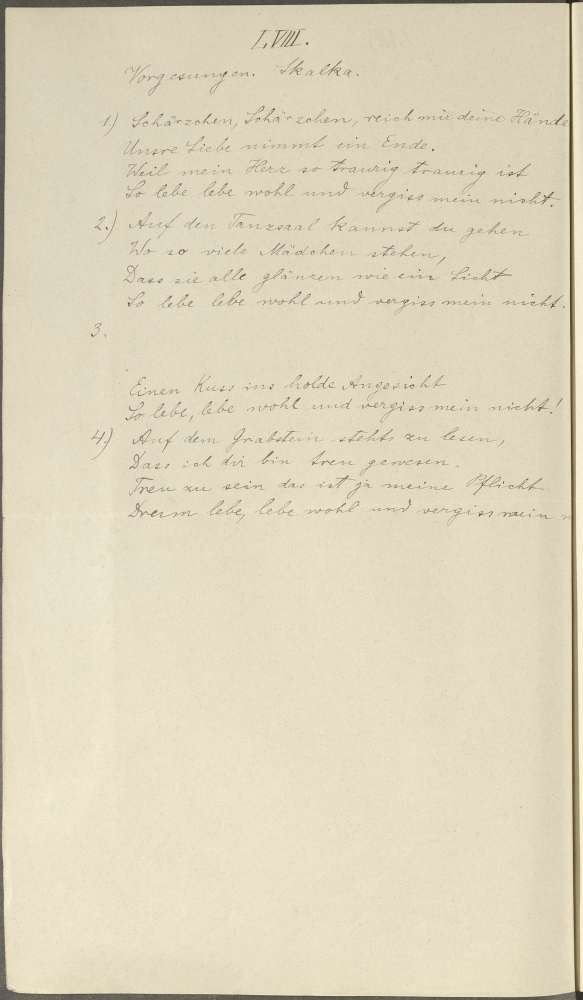 LVIII.
Vorgesungen. Skalka.
1.) Schärzchen, Schärzchen, reich mir deine Hände
Unsre Liebe nimmt ein Ende.
Weil mein Herz so traurig traurig ist
So lebe lebe wohl und vergiss mein nicht.
2.) Auf den Tanzsaal kannst du gehen
Wo so viele Mädchen stehen,
Dass sie alle glänzen wie ein Licht
So lebe lebe wohl und vergiss mein nicht.
3.
Einen Kuss ins holde Angesicht
So lebe, lebe wohl und vergiss mein nicht!
4.) Auf dem Grabstein stehts zu lesen,
Dass ich dir bin treu gewesen.
Treu zu sein das ist ja meine Pflicht
Drum lebe, lebe wohl und vergiss mein n